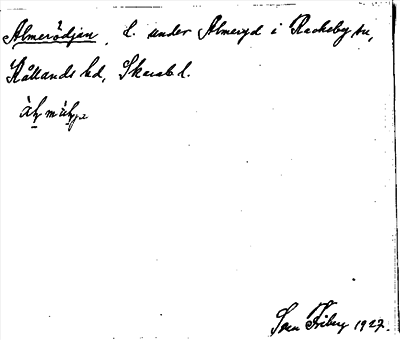 Almerödjan, l. under Almeryd i Rackeby sn,
Kållands hd, Skarab l.
Sven Friberg 1927.